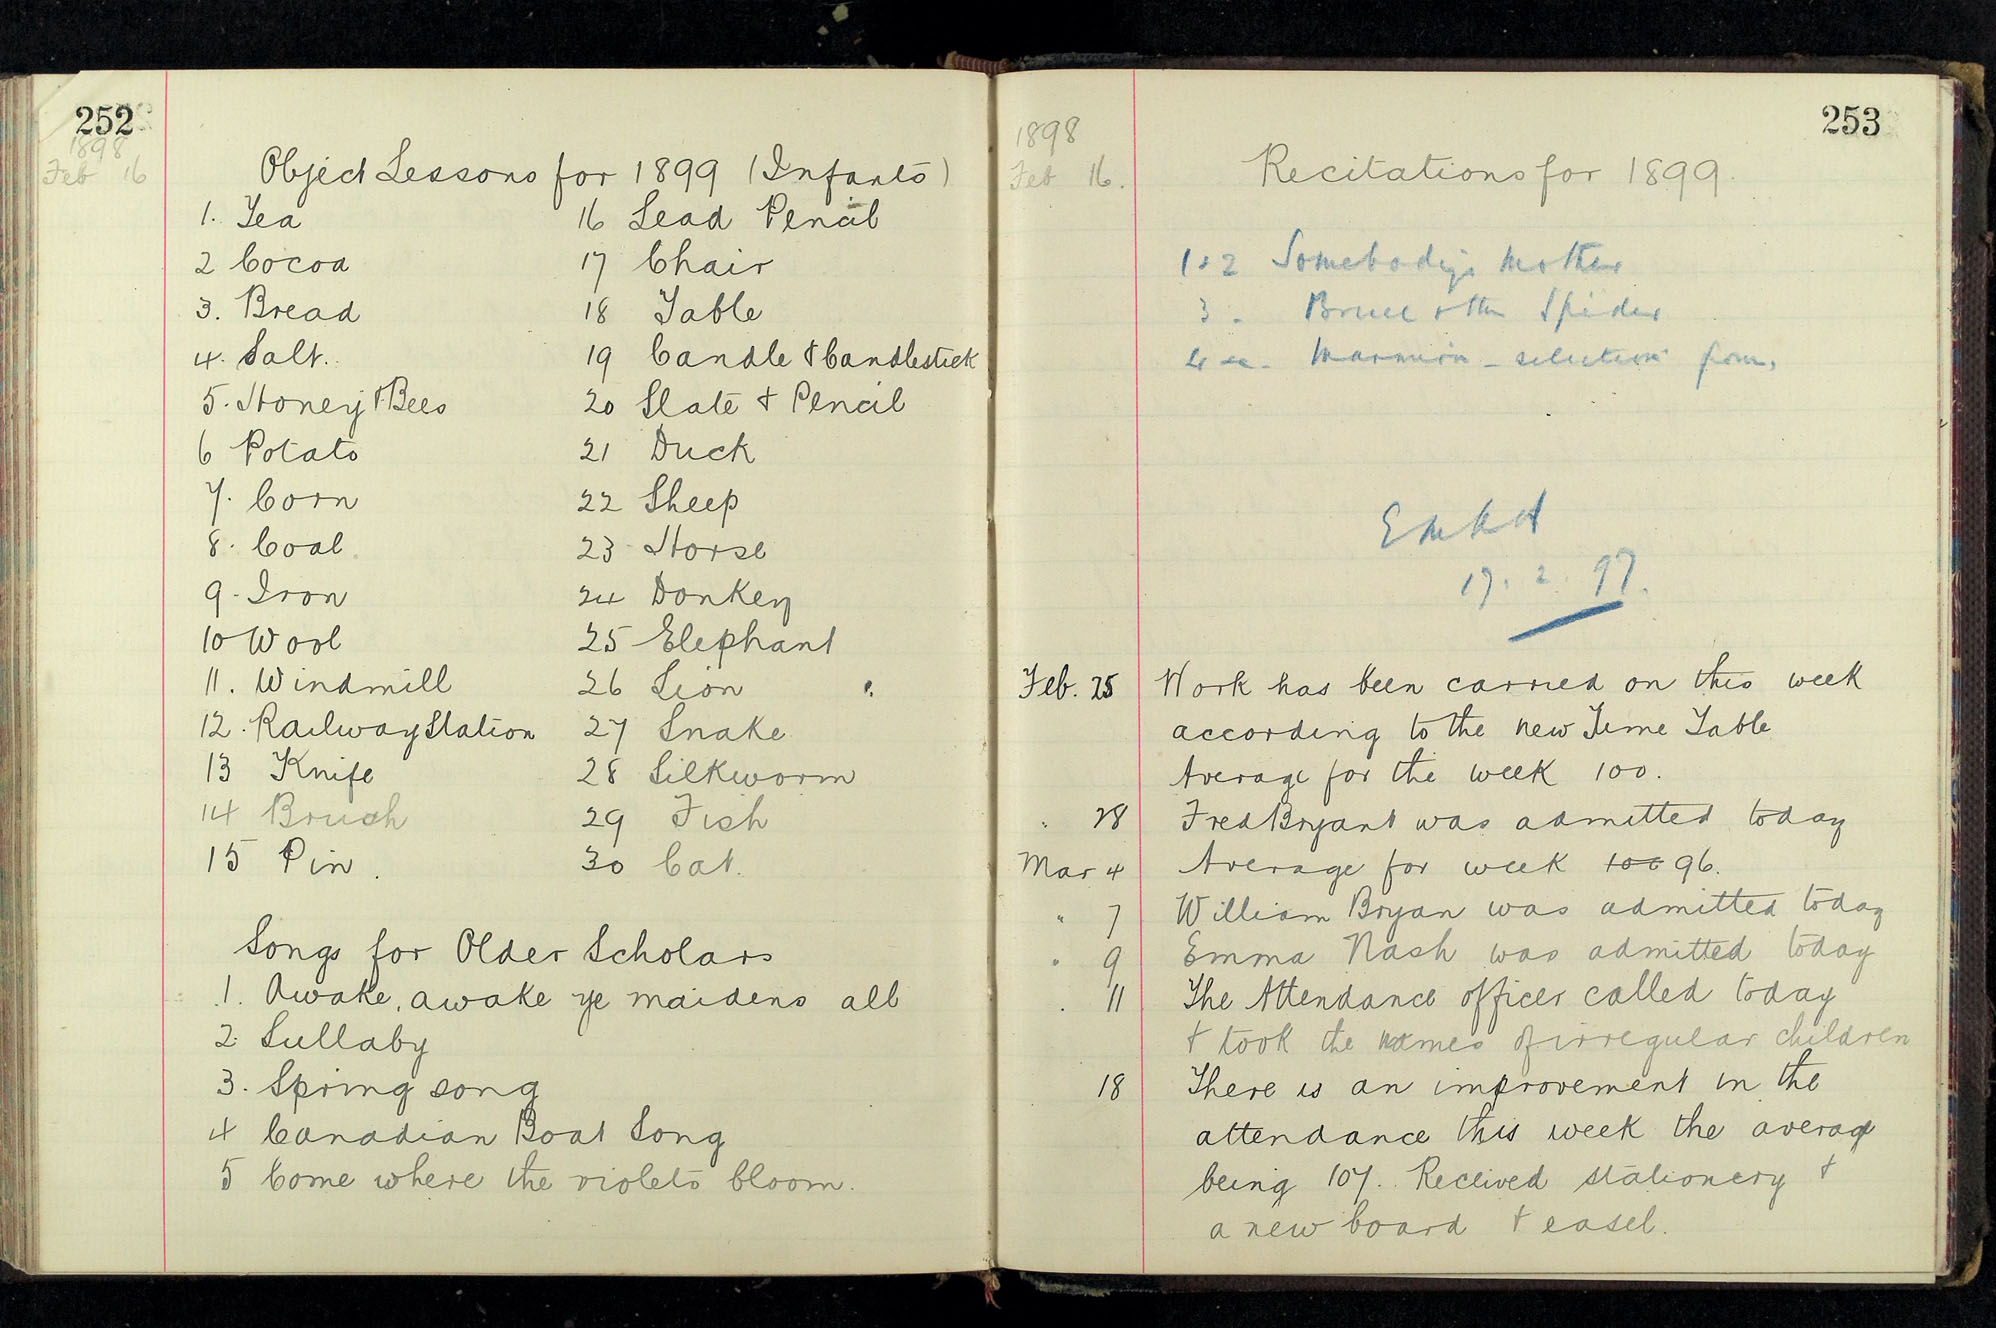 252
1898
Feb 16
Object Lessons for 1899 (Infants)
1. Tea
2 Cocoa
3. Bread
4. Salt.
5. Honey & Bees
6 Potato
7. Corn
8. Coal
9. Iron
10 Wool
11. Windmill
12. Railway Station
13 Knife
14 Brush
15 Pin.
16 Lead Pencil
17 Chair
18 Table
19 Candle & Candlestick
20 Slate & Pencil
21 Duck
22 Sheep
23 Horse
24 Donkey
25 Elephant
26 Lion
27 Snake
28 Silkworm
29 Fish
30 Cat.
Songs for Older Scholars
1. Awake, awake ye maidens all
2. Lullaby
3. Spring song
4 Canadian Boat Song
5 Come where the violets bloom.
253
1898
Feb 16.
Recitations for 1899.
1 & 2 Somebody's Mother
3. Bruce & the Spider
4 Marmion - selection from.
17. 2. 97.
Feb. 25 Work has been carried on this week
according to the new Time Table
Average for the week 100.
" 28 Fred Bryant was admitted today
Mar 4 Average for week 100 96.
" 7 William Bryan was admitted today
" 9 Emma Nash was admitted today
" 11 The Attendance officer called today
& took the names of irregular children
18 There is an improvement in the
attendance this week the average
being 107. Received stationery &
a new board & easel.